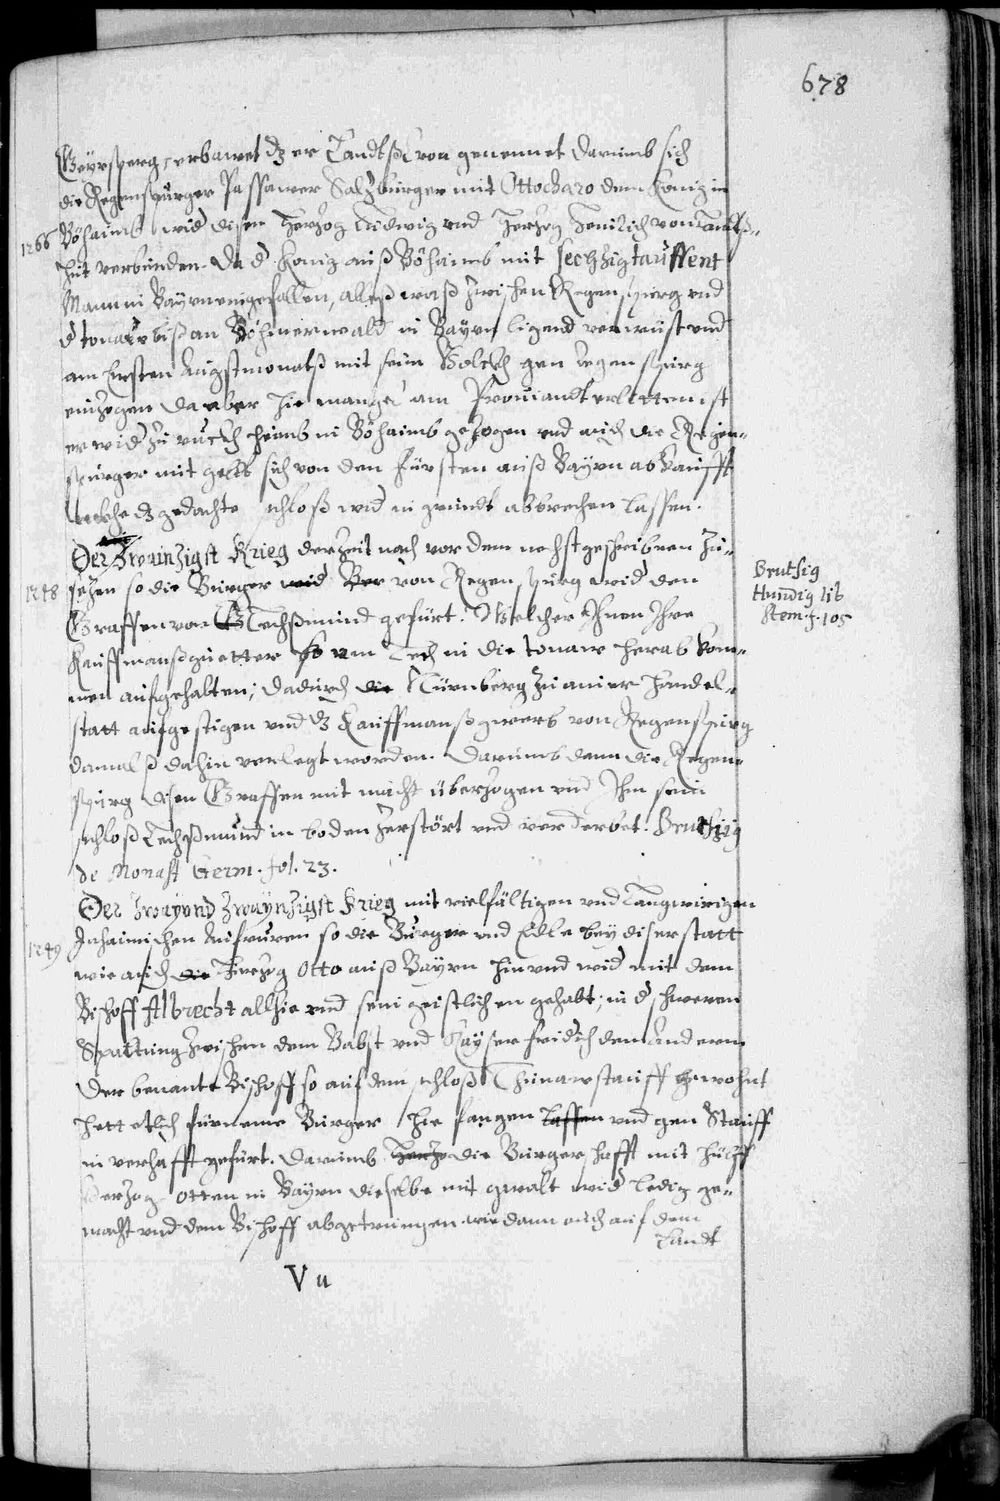 678
Geyrsperg, erbawet dz er Landtß Cron genennet darumb sich
die Regenspurger Passawer Saltzburger mit Ottocharo dem König in
1266 Böhaimb wid disen Hertzog Ludwig vnd Hertzog Heinrich von Landtß-
hut verbunden. Da d. König auß Böhaimb mit sechzig taussent
Mann in Bayrn eingefallen, alleß waß zwischen Regenspurg vnd
d tonaw biß an Böhmerwald in Bayrn ligend verwüst vnd
am Ersten Augstmonatß mit seim Volckh gen Regenspurg
einzogen da aber hie mangel am Prouiandt erlitten ist
er wid zu ruckh heimb in Böhaimb gezogen vnd auch die Regen-
spurger mit gelt sich von den fürsten auß Bayrn abkaufft
welche dz gedachte schloß wid in grundt abbrechen lassen.
Der Zwainzigst Krieg der Zeit nach vor dem nechstgeschribnen zu-
1248 sezen so die Burger wid Ber von Regenspurg wid den
Graffen von G Lechßmünd gefürt. Welcher Ihnen Ihre
Kauffmanßguetter so vom Lech in die tonaw herab kom-
men aufgehalten; dadurch die Nürnberg zu ainer handel-
statt aufgestigen vnd dz Kauffmanß gwerb von Regenspurg
damalß dahin verlegt worden. Darumb dann die Regen-
spurg disen Graffen mit macht überzogen vnd Ihm sein
schloß Lechßmünd in boden zerstört vnd verderbet. Brutzig
de Monast Germ. fol. 23.
Brutsig
Hundig lib
Stem. f. 105
Der Zwayvnd Zwaynzigst Krieg mit vielfältigen vnd Langwirigen
1249 Inhaimischen Aufruren so die Burger vnd Edle bey diser statt
wie auch die Hertzog Otto auß Bayrn hin vnd wid mit dem
Bischoff Albrecht allhie vnd sein geistlichen gehabt; in d schweren
Spaltung zwischen dem Babst vnd Kayser fridrich dem Andern
Der benante Bischoff so auf dem schloß Thunawstauff gewohnt
hett etlich fürneme Burger hie fangen lassen vnd gen Stauff
in verhafft gefürt. Darumb Hertzo die Burgerschafft mit hülff
Herzog Otten in Bayrn dieselbe mit gwalt wid ledig ge-
macht vnd dem Bischoff abgetrungen wie dann auch auf dem
Landt
V u